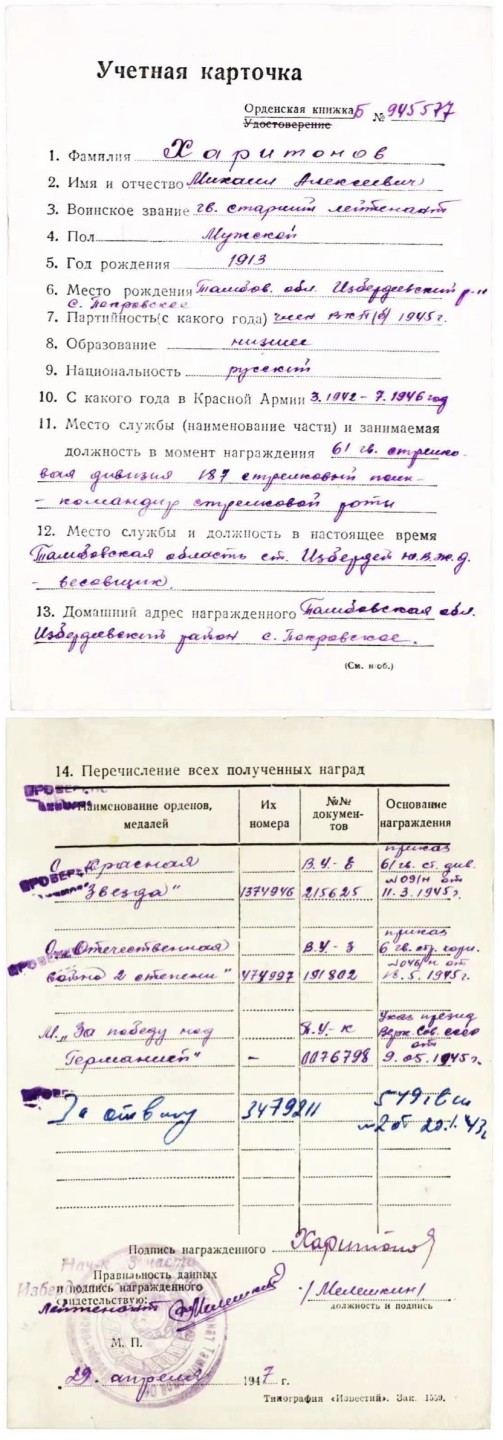 Учетная карточка
Орденская книжка Б № 945577
Удостоверение
1. Фамилия Харитонов
2. Имя и отчество Михаил Алексеевич
3. Воинское звание гв. старший лейтенант
4. Пол Мужской
5. Год рождения 1913
6. Место рождения Тамбов. обл. Избердеевский р-н
с. Покровское
7. Партийность (с какого года) член ВКП(б) 1945 г.
8. Образование низшее
9. Национальность русский
10. С какого года в Красной Армии 3.1942 – 7.1946 год
11. Место службы (наименование части) и занимаемая
должность в момент награждения 61 гв. стрелко-
вая дивизия 187 стрелковый полк-
- командир стрелковой роты
12. Место службы и должность в настоящее время
Тамбовская область ст. Избердей ю.в.ж.д.
- весовщик.
13. Домашний адрес награжденного Тамбовская обл.
Избердеевский район с. Покровское.
(См. н/об.)
14. Перечисление всех полученных наград
Наименование орденов, медалей
Их номера
№№ документов
Основание награждения
О. „Красная Звезда“ 1374946 В.У-Б 215625 приказ 61 гв. ст. див. №091/н от 11.3.1945 г.
О. „Отечественная война 2 степени“ 474997 В.У-З 191802 приказ 6 гв. стр. корп. №046/н от 18.5.1945 г.
М. „За победу над Германией“ - 0076798 Указ презид Верх. Сов. ссср от 9.05.1945 г.
За отвагу 3479211 549 гв сп №2 от 20.1.43 г
Подпись награжденного Харитонов
Нач-к 3 части
Правильность данных
и подпись награжденного
свидетельствую:
лейтенант Мелешкин /Мелешкин/
должность и подпись
М. П.
29. апреля 1947 г.
Типография «Известий». Зак. 1559.